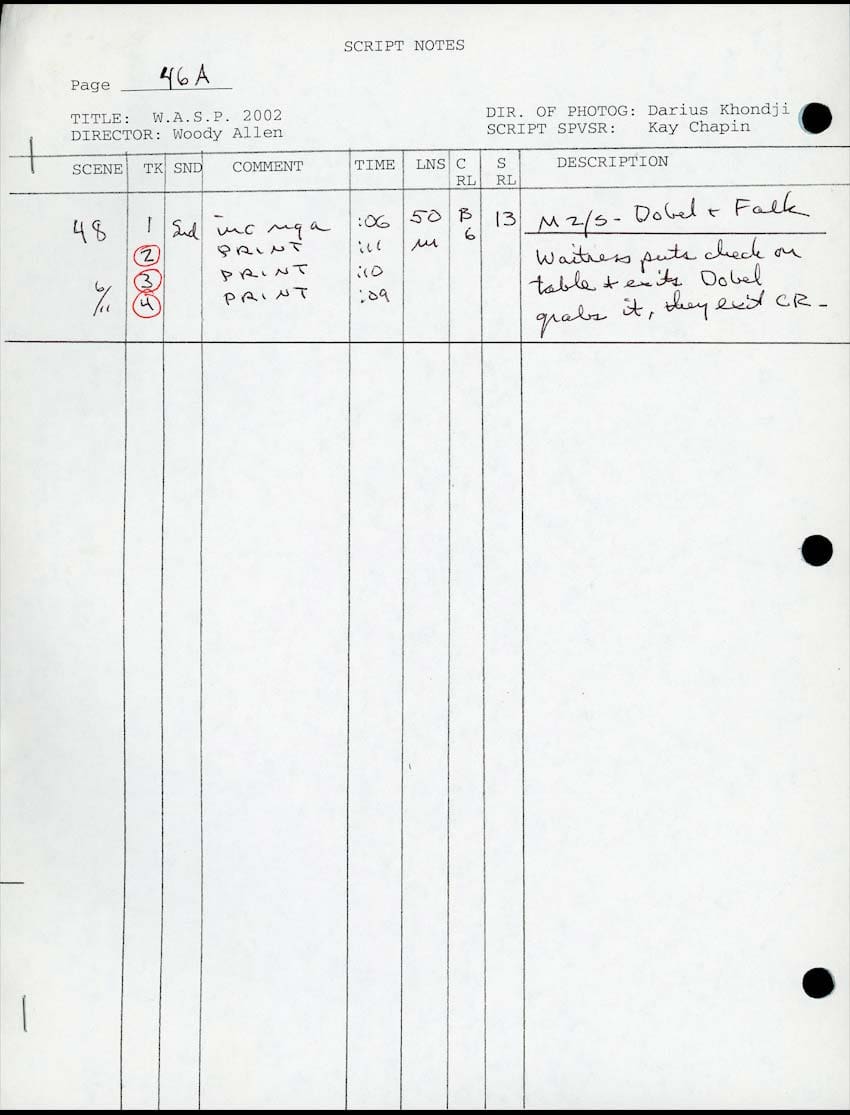 SCRIPT NOTES
Page 46A
TITLE: W.A.S.P. 2002
DIRECTOR: Woody Allen
DIR. OF PHOTOG: Darius Khondji
SCRIPT SPVSR: Kay Chapin
SCENE TK SND COMMENT TIME LNS C RL S RL DESCRIPTION
48 1 Snd inc nga :06 50 B 13 M 2/S - Dobel + Falk
2 PRINT :11 m 6 Waitress puts check on
3 PRINT :10 table + exits Dobel
6/11 4 PRINT :09 grabs it, they exit CR -